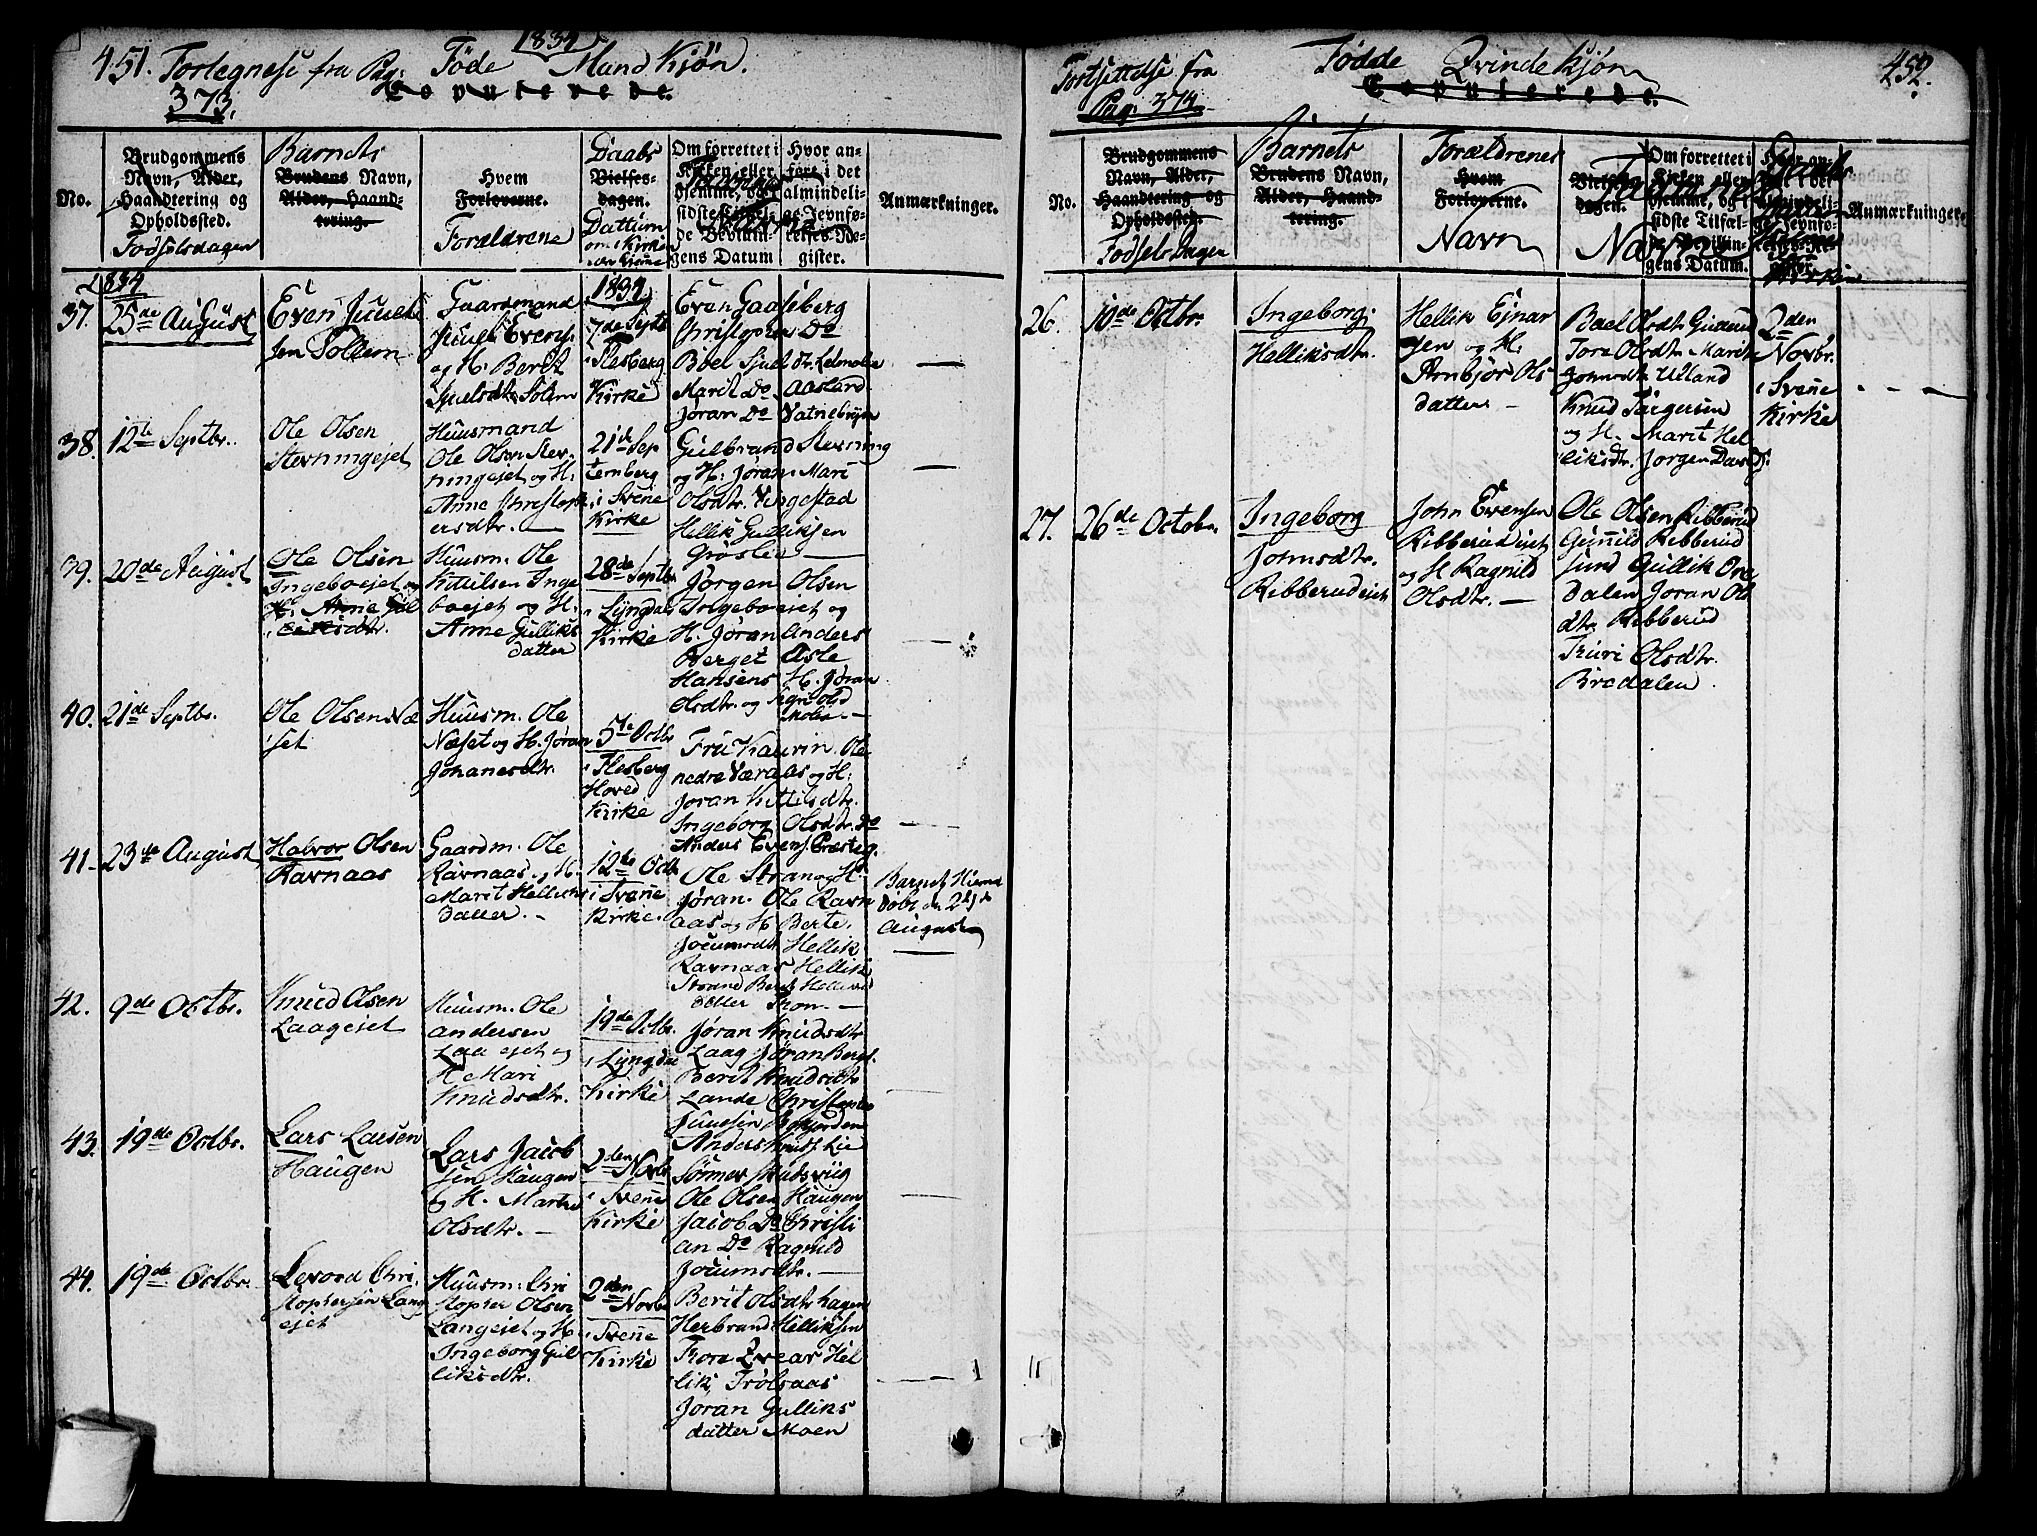 451. Fortegnese fra Pag: Töde 1834 Mund Kjön.
373.
Copulerede.
No.
Brudgommens Navn, Alder, Haandtering og Opholdssted.
Fodselsdagen
Barnets
Brudens Navn, Alder, Haandtering.
Hvem Forloverne.
Forældrene
Daabs
Vielses-dagen.
Dattum
Hvor an-
ført i det
almindeli-
ge Jevnfø-
relses-Re-
gister.
Anmærkninger.
1834
37. 25de August
Even Juuel
sen Sollem
Gaardmand
Juul Evens.
og H. Berit
Juelsdtr. Solem
1834
7de Septb
i Flesberg
Kirke
Even Gaaseberg
Christopher Do
Boel Sjuls dtr.
Marit Do Aasland
Joran Do Vatnebryn
38. 12te Septbr.
Ole Olsen
Stevningejet
Huusmand
Ole Olsen Stev-
ningejet og H:
Anne Christoph
ersdtr. —
21de Sep
tember
i Svene
Kirke
Gulbrand Stevning
og H: Jøran Mari
Olsdtr. Vingestad
Hellik Gulliksen
Grøslie —
39. 20de August
Ole Olsen
Ingeboejet
Huusm. Ole
Kittilsen Inge
boejet og H.
Anne Gulliks
datter
28de Septbr
i Lyngdal
Kirke
Jørgen Olsen
Ingeboejet og
H. Jøran Anders
Berget Asle
Hansens H. Jøran
Olsdtr. og Sigri Olsd
Moen —
40. 21de Septbr.
Ole Olsen Næ
set
Huusm. Ole
Næset og H. Jøran
Johanesdtr.
5te Octbr
i Flesberg
Hoved
Kirke
Fru Kaurin. Ole
nedre Væraas og H:
Joran Kittilsdtr.
Ingeborg Olsdtr. Do
Anders Evens. Præsteg.
41. 23de August
Halvor Olsen
Ravnaas
Gaardm. Ole
Ravnaas. og H.
Marit Helliks
datter. —
12te Octb.
i Svene
Kirke.
Ole Stran og H.
Jøran. Ole Ravn
aas og H Berte.
Joeumsdtr. Hellik
Ravnaas Hellik
Strand Berit Helliks
datter Strom —
Barnet Hiemme
døbt den 24de
August
42. 9de Octbr.
Knud Olsen
Laagejet
Huusm. Ole
Andersen
Laaejet og
H Mari
Knudsdtr.
19de Octbr.
i Lyngdal
Kirke
Jøran Knudsdtr
Laag Jøran Berg.
Berit Knudsdtr
Lande Christopher
Anders Knuds. Lie
43. 19de Octbr.
Lars Larsen
Haugen
Lars Jacob
sen Haugen
og H. Marthe
Olsdtr. —
2den Novb
i Svene
Kirke
Ole Olsen Haugen
Jacob Do Christi
an Do Ragnild
Jocumsdtr. —
44. 19de Octbr.
Levord Chri
stophersen Lang
ejet
Huusm: Chri
stopher Olsen
Langejet og H.
Ingeborg Gul
liksdtr.
2den
Novbr
i Svene
Kirke
Berit Olsdtr. Hagen
Herbrand Helliksen
Thore Evear Hel
lik Trølsaas
Joran Gulliks
datter Moen
Fortsettelse fra
Pag. 374
Tødde Qvinde Kjøn
Copulerede.
452.
No.
Brudgommens Navn, Alder, Haandtering og Opholdssted.
Fodsels Dagen
Barnets
Brudens Navn, Alder, Haandtering.
Forældrenes
Hvem Forloverne.
Navn
Navne
Anmærkninger.
26. 10de Octbr.
Ingeborg
Helliksdtr.
Hellik Ejnar
sen og H:
Arnbjør Ols
datter —
Boel Olsdtr.
Tore Olsdtr. Marit
Johnsdtr. Ulland
Knud Targersen
og H. Marit Hel
liksdtr. Jorgen
2den
Novbr.
i Svene
Kirke
27. 26de Octobr.
Ingeborg
Johnsdtr.
Ribberudeiet
John Evensen
Ribberudeiet
og H Ragnild
Olsdtr. —
Ole Olsen Ribberud
Gunild Ribberud
Gullik Bre
dalen Joran Ols
dtr. Ribberud
Thuri Olsdtr.
Bredalen